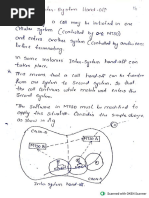 Inter System Hand-off
a call may be initated in one
cellular System (controlled by one MTSO)
and enters another System (controlled by another MTSO)
before terminating.
In some instances Inter-System hand-off can
taken place.
This means that a call Hand-off can be transfer
from one System to Second System, so that
the call continue while mobile unit enters the
Second System.
The software in MTSO must be modified to
apply this situation. Consider the simple diagram
as shown in fig
MTSO A
MTSO B
Inter System hand-off.
CS Scanned with OKEN Scanner